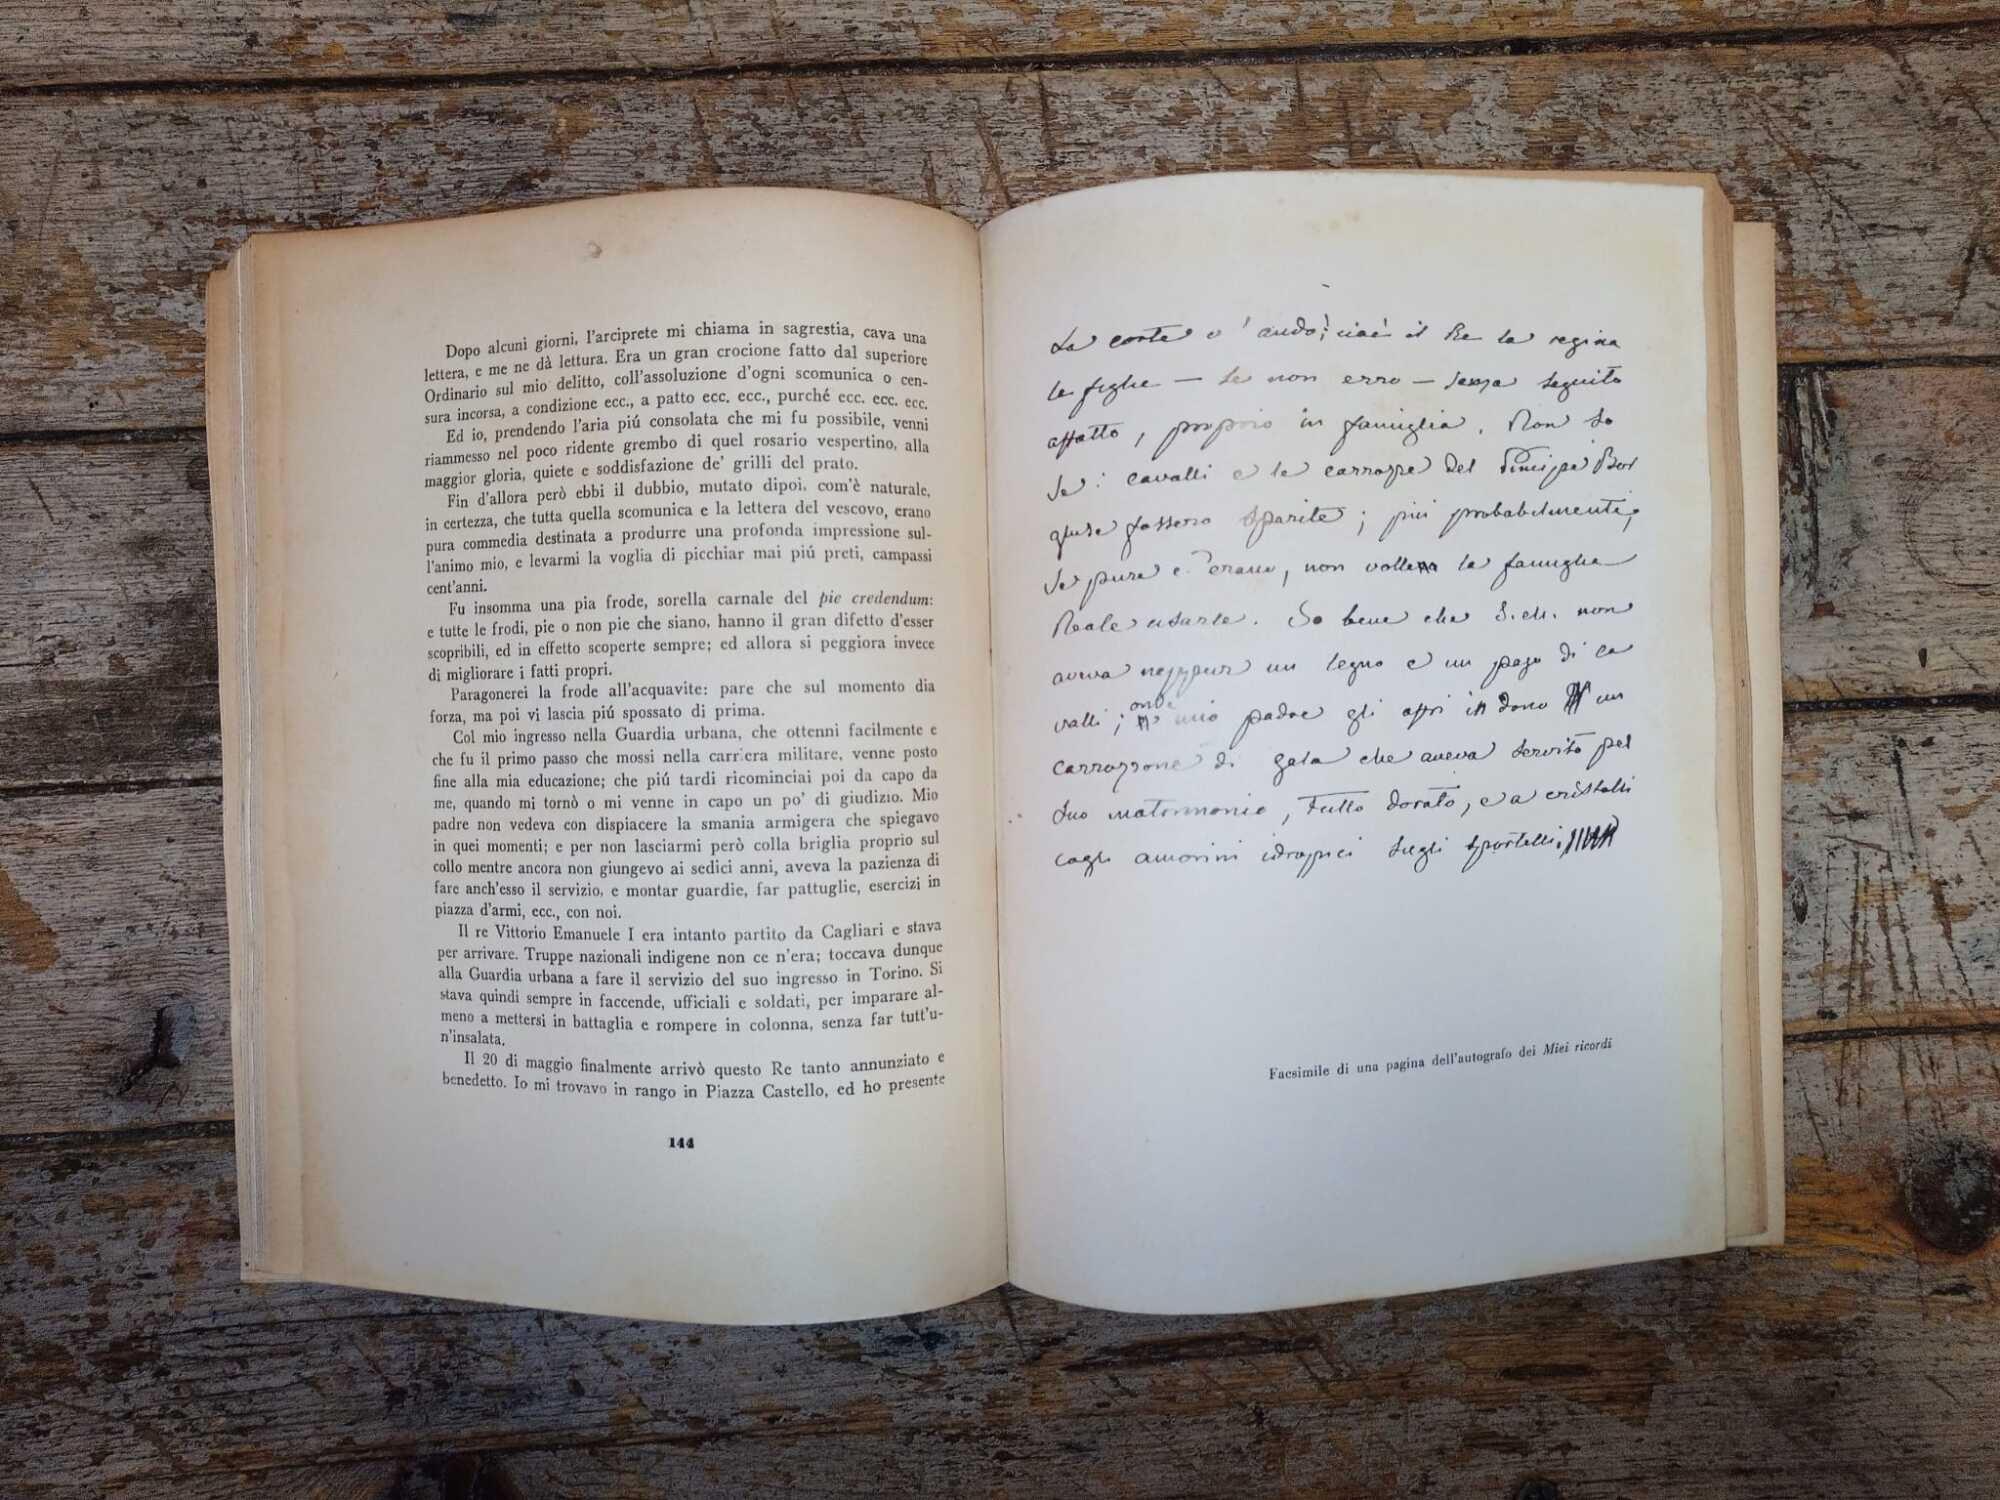 Dopo alcuni giorni, l'arciprete mi chiama in sagrestia, cava una
lettera, e me ne dà lettura. Era un gran crocione fatto dal superiore
Ordinario sul mio delitto, coll'assoluzione d'ogni scomunica o cen-
sura incorsa, a condizione ecc., a patto ecc. ecc., purché ecc. ecc. ecc.
Ed io, prendendo l'aria piú consolata che mi fu possibile, venni
riammesso nel poco ridente grembo di quel rosario vespertino, alla
maggior gloria, quiete e soddisfazione de' grilli del prato.
Fin d'allora però ebbi il dubbio, mutato dipoi, com'è naturale,
in certezza, che tutta quella scomunica e la lettera del vescovo, erano
pura commedia destinata a produrre una profonda impressione sul-
l'animo mio, e levarmi la voglia di picchiar mai piú preti, campassi
cent'anni.
Fu insomma una pia frode, sorella carnale del pie credendum:
e tutte le frodi, pie o non pie che siano, hanno il gran difetto d'esser
scopribili, ed in effetto scoperte sempre; ed allora si peggiora invece
di migliorare i fatti propri.
Paragonerei la frode all'acquavite: pare che sul momento dia
forza, ma poi vi lascia piú spossato di prima.
Col mio ingresso nella Guardia urbana, che ottenni facilmente e
che fu il primo passo che mossi nella carriera militare, venne posto
fine alla mia educazione; che piú tardi ricominciai poi da capo da
me, quando mi tornò o mi venne in capo un po' di giudizio. Mio
padre non vedeva con dispiacere la smania armigera che spiegavo
in quei momenti; e per non lasciarmi però colla briglia proprio sul
collo mentre ancora non giungevo ai sedici anni, aveva la pazienza di
fare anch'esso il servizio, e montar guardie, far pattuglie, esercizi in
piazza d'armi, ecc., con noi.
Il re Vittorio Emanuele I era intanto partito da Cagliari e stava
per arrivare. Truppe nazionali indigene non ce n'era; toccava dunque
alla Guardia urbana a fare il servizio del suo ingresso in Torino. Si
stava quindi sempre in faccende, ufficiali e soldati, per imparare al-
meno a mettersi in battaglia e rompere in colonna, senza far tutt'u-
n'insalata.
Il 20 di maggio finalmente arrivò questo Re tanto annunziato e
benedetto. Io mi trovavo in rango in Piazza Castello, ed ho presente
144
La corte v'andò; cioè il Re la regina
le figlie — se non erro — senza seguito
affatto, proprio in famiglia. Non so
se i cavalli e le carrozze del Principe Bor
ghese fossero sparite; più probabilmente,
se pure c'erano, non volle la famiglia
Reale usarle. So bene che S.M. non
aveva neppure un legno e un pajo di ca
valli; onde mio padre gli offrì in dono un
carrozzone di gala che aveva servito pel
suo matrimonio, tutto dorato, e a cristalli
cogli amorini idropici sugli sportelli.
Facsimile di una pagina dell'autografo dei Miei ricordi